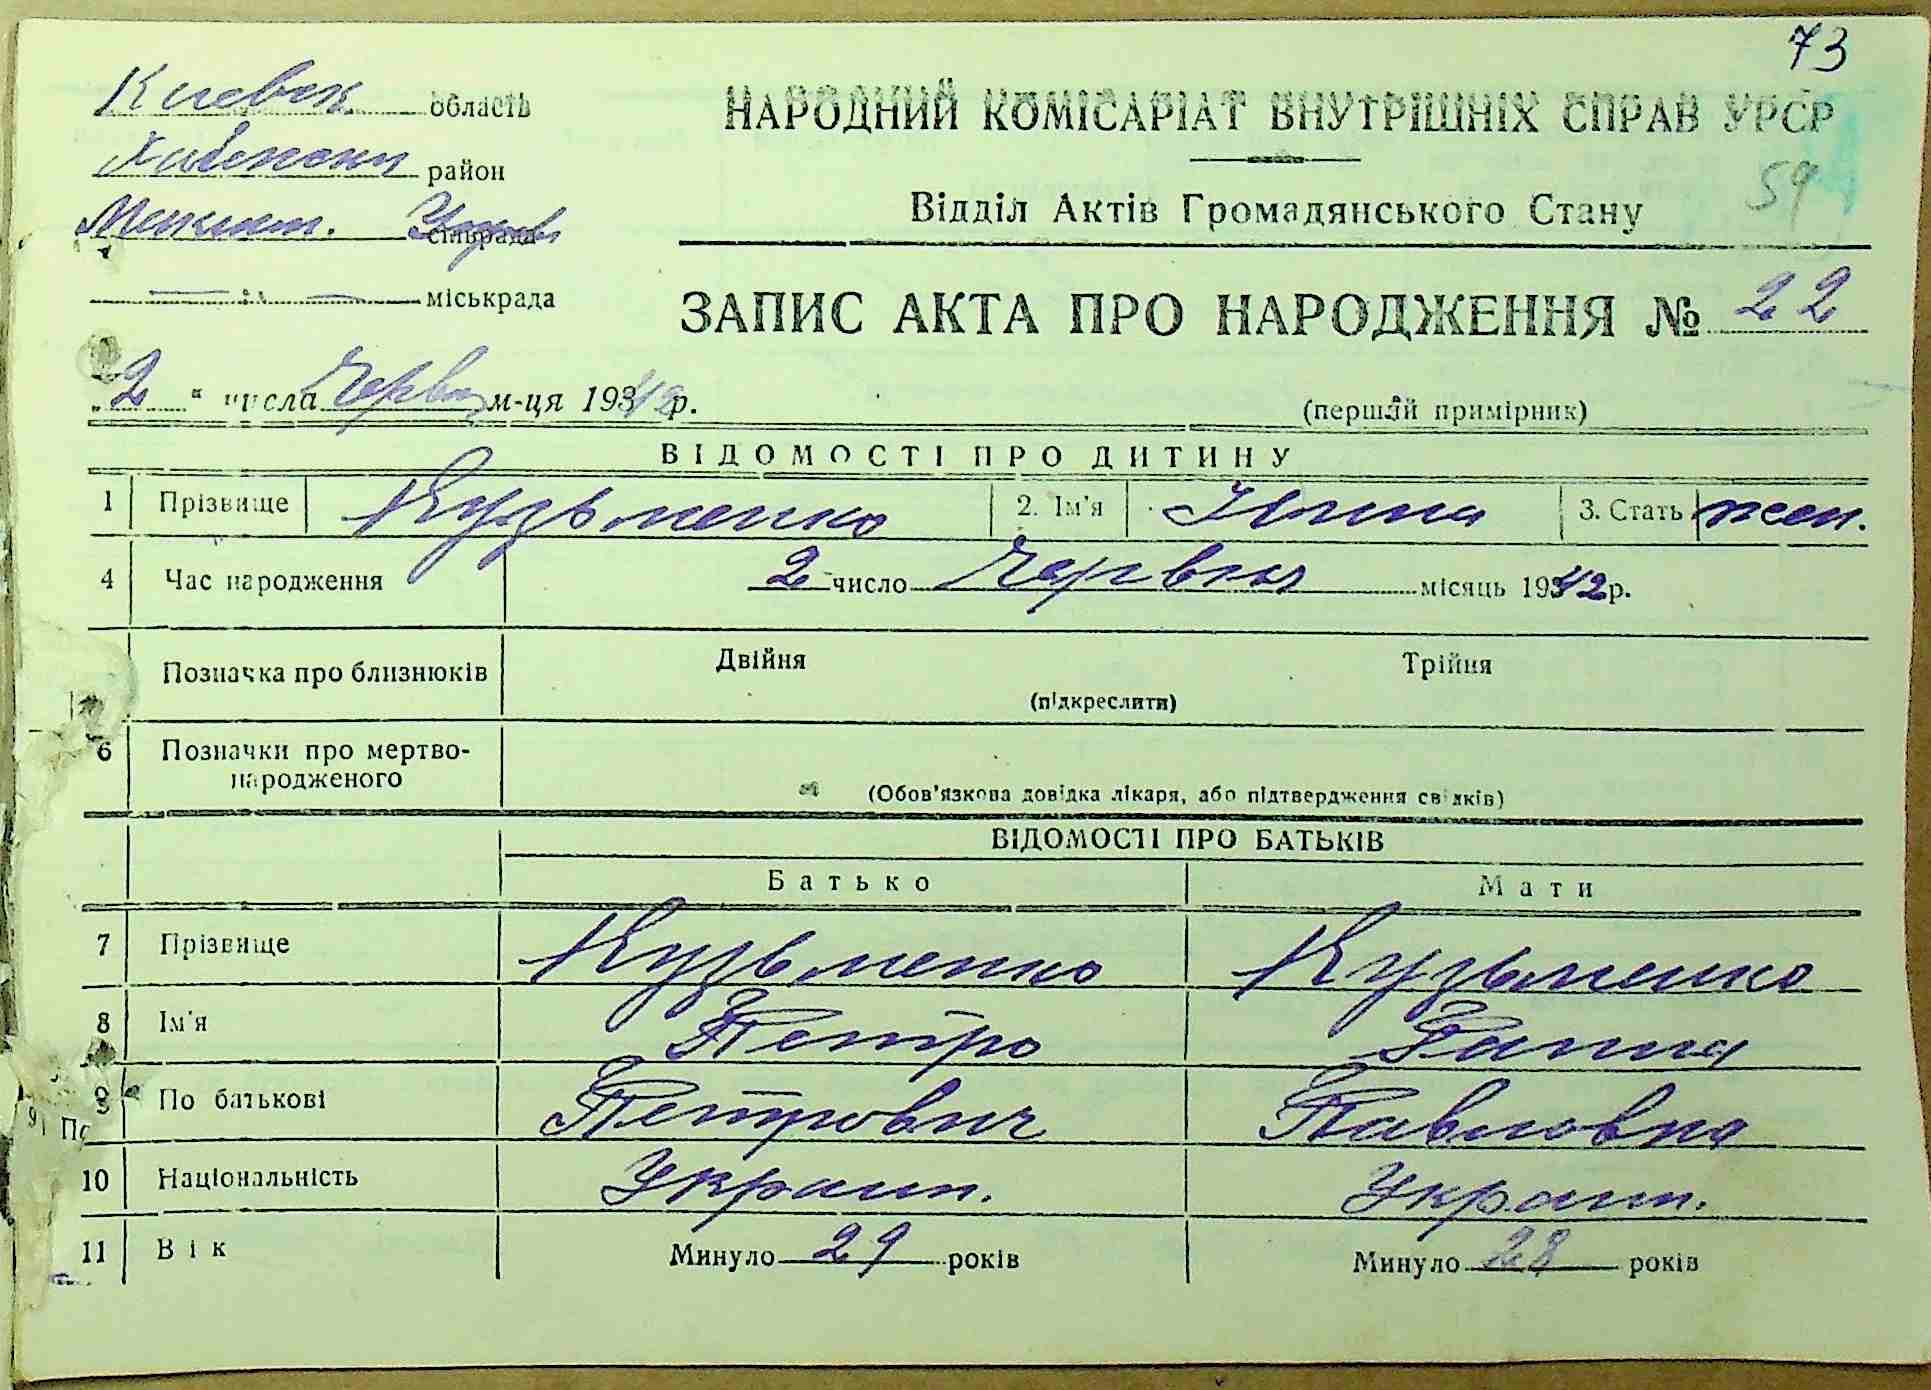 73
Киевск область
район
співрада
міськрада
НАРОДНИЙ КОМІСАРІАТ ВНУТРІШНІХ СПРАВ УРСР
Відділ Актів Громадянського Стану
59
ЗАПИС АКТА ПРО НАРОДЖЕННЯ № 22
„2“ числа Червня м-ця 1942р.
(перший примірник)
ВІДОМОСТІ ПРО ДИТИНУ
1 Прізвище Кузьменко 2. Ім'я Ніина 3. Стать жен.
4 Час народження 2 число Червня місяць 1942р.
Позначка про близнюків Двійня Трійня
(підкреслити)
6 Позначки про мертво-
народженого
(Обов'язкова довідка лікаря, або підтвердження свідків)
ВІДОМОСТІ ПРО БАТЬКІВ
Батько Мати
7 Прізвище Кузьменко Кузьменко
8 Ім'я Петро Ганна
9 По батькові Петрович Павловна
9 По
10 Національність Украин. Украин.
11 Вік Минуло 29 років Минуло 28 років